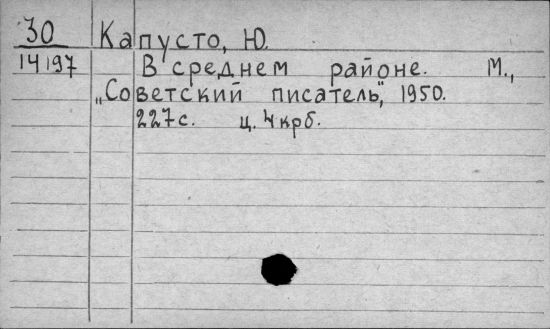 30 Капусто, Ю.
14197 В среднем районе. М.,
„Советский писатель“, 1950.
227с. ц. 4крб.